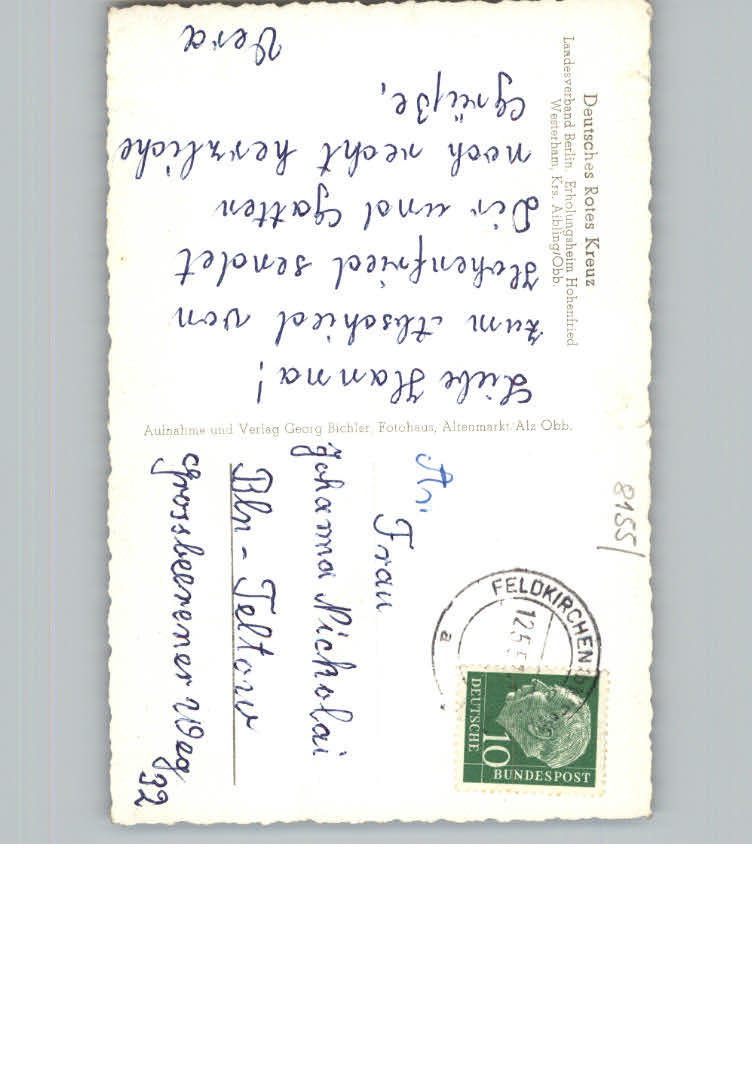 Deutsches Rotes Kreuz
Landesverband Berlin, Erholungsheim Hohenfried
Westerham, Krs. Aibling/Obb.
Liebe Hanna!
Zum Abschied von
Hohenfried sendet
Dir und Gatten
noch recht herzliche
Grüße,
Vera
Aufnahme und Verlag Georg Bichler, Fotohaus, Altenmarkt/Alz Obb.
8155/
FELDKIRCHEN
12.5.5
a
DEUTSCHE
10
BUNDESPOST
An
Frau
Johanna Nicholai
Bln - Teltow
Grossbeerener Weg
32